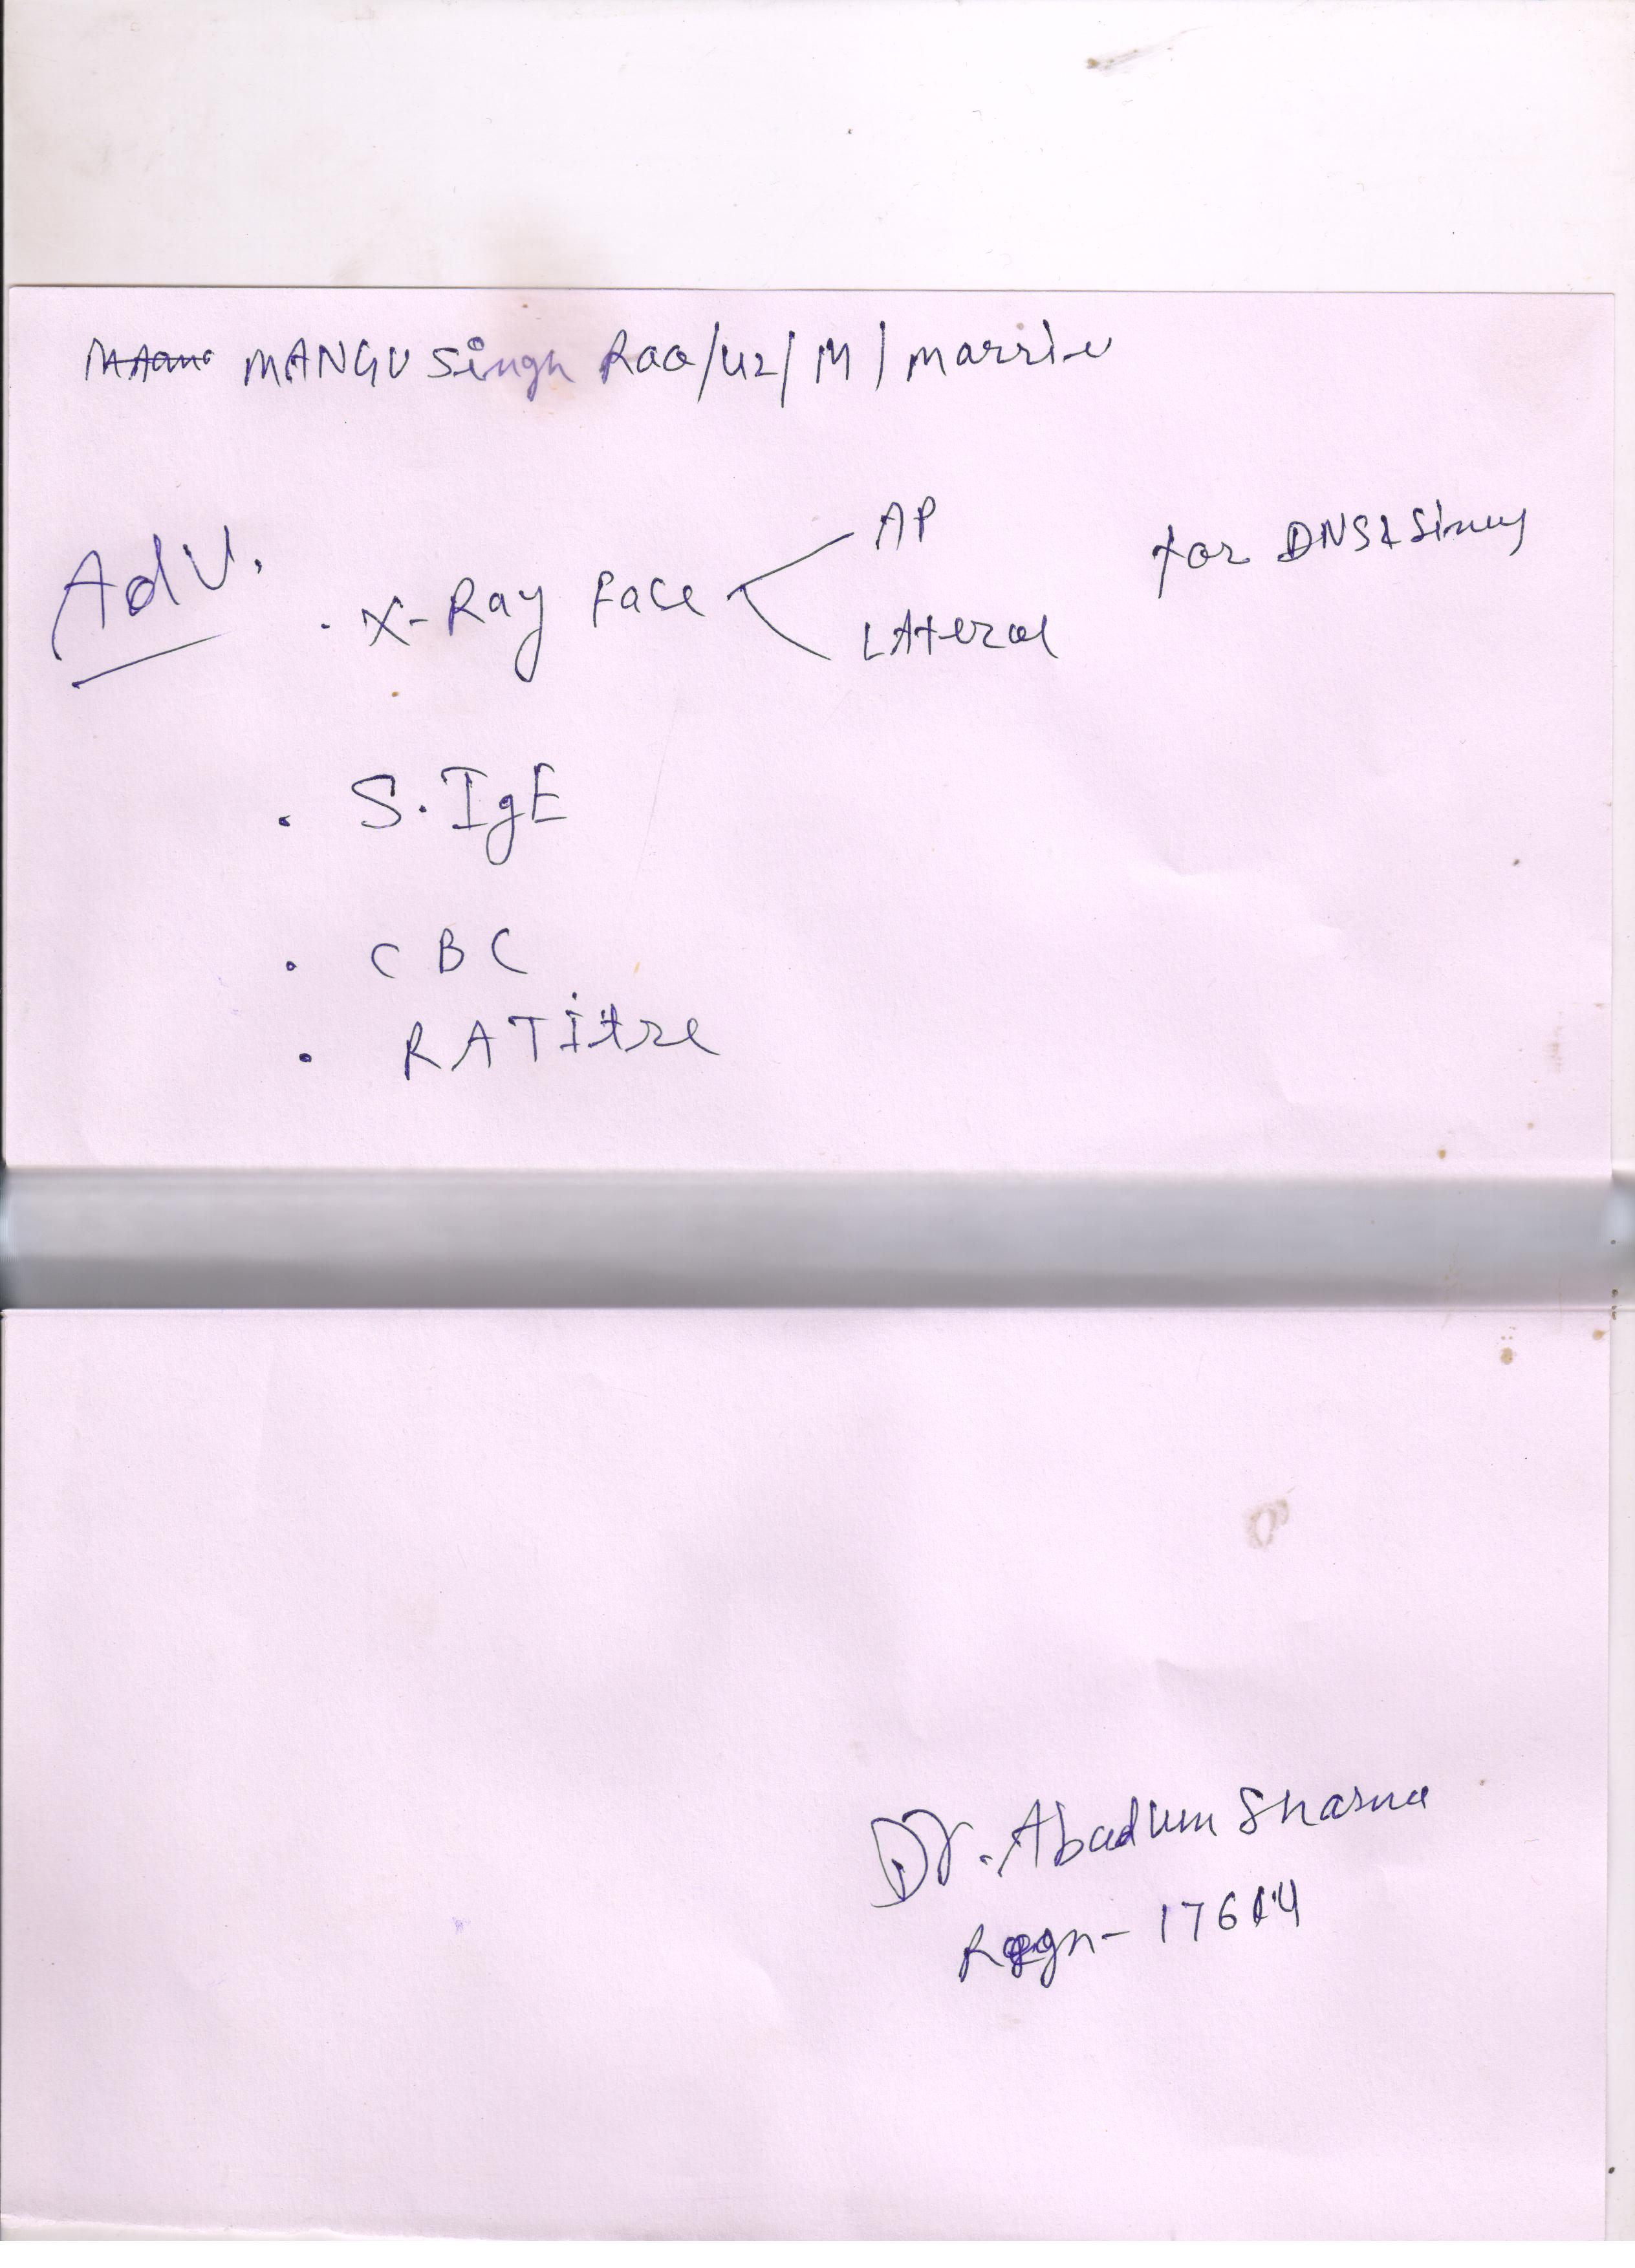 MANGU Singh Rao/42/M/married
Adv.
. X-Ray Face < AP for DNS & Sinus
LAteral
. S.IgE
. CBC
. RA Titre
Dr. Sharma
Regn- 17614